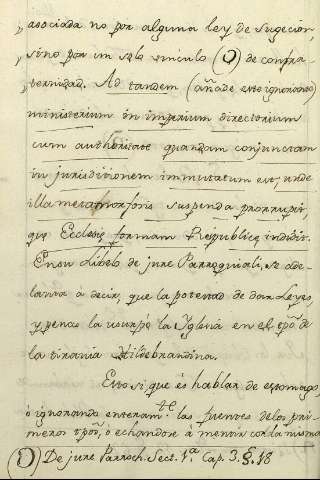 „ asociada no por alguna ley de sugecion,
„ sino por un solo vinculo (O) de confra-
„ ternidad. Ad tandem (añade este ignorante)
ministerium in imperium directorium
cum authoritate quandam conjunctam
in jurisditionem immutatum est, unde
illa metamorfosis suspenda prorrupit,
que Ecclesie formam Reipublice indidit.
En su Libelo de jure Parroquiali, se ade-
lanta à decir, que la potestad de dar Leyes,
y penas la usurpò la Yglesia en el tpô de
la tirania Hildebrandina.
Esto si que es hablar de estomago,
ò ignorando enteram.te las fuentes de los pri-
meros tpõs, ò echandose à mentir con la misma
(O) De jure Parroch. Sect. 1.a Cap. 3. §. 18